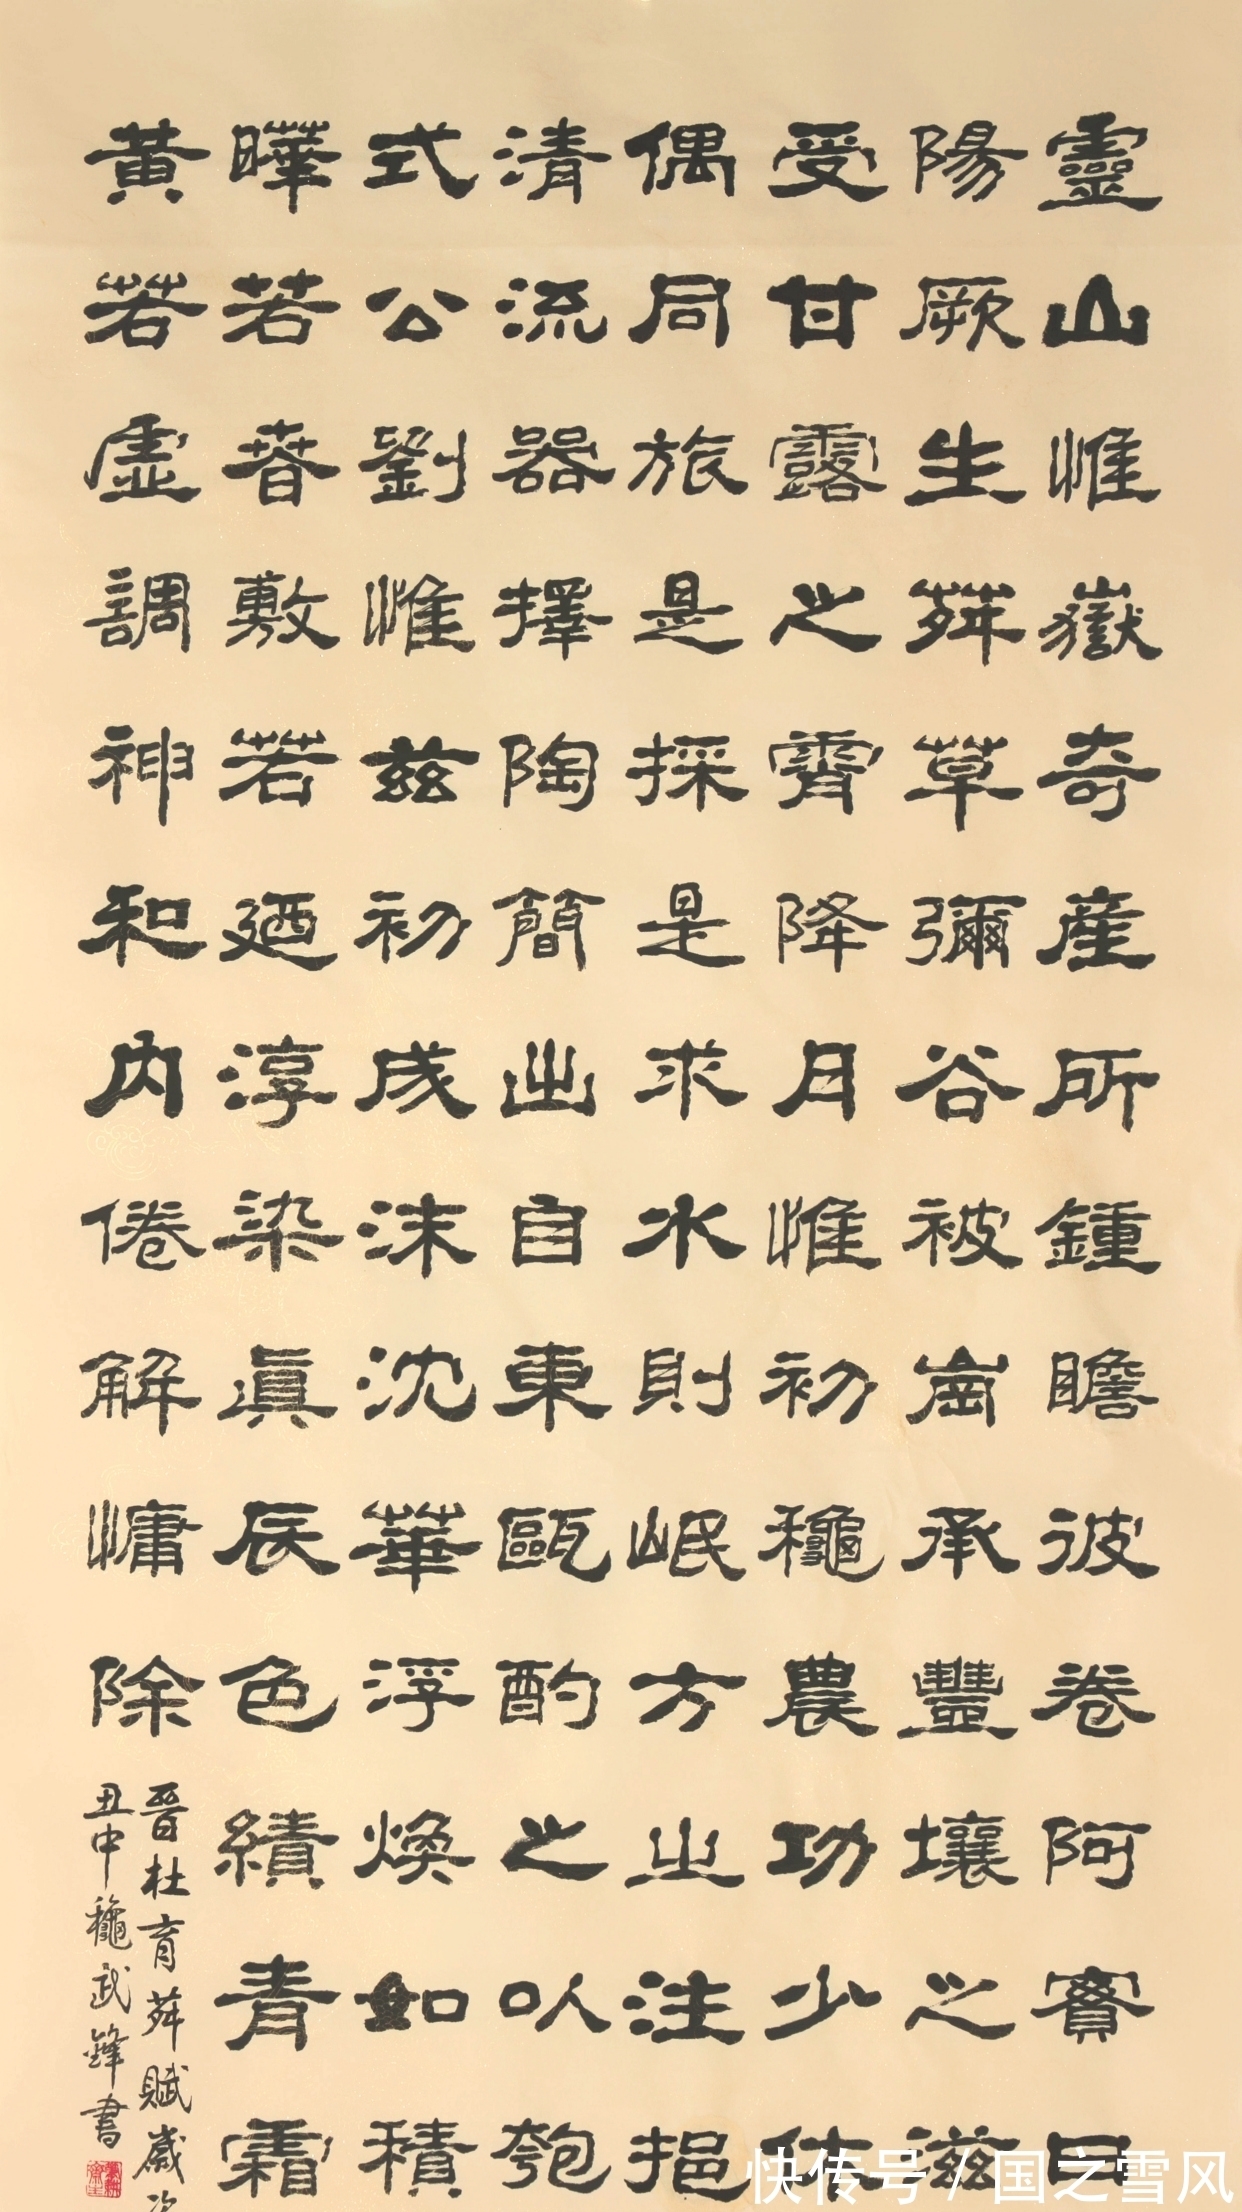 靈山惟嶽奇産所鍾瞻彼卷阿實曰
陽厥生荈草彌谷被崗承豐壤之滋
受甘露之霄降月惟初穐農功少休
偶同旅是採是求水則岷方之注挹
清流器擇陶簡出自東甌酌之以匏
式公劉惟兹初成沫沈華浮煥如積
曄若春敷若迺淳染眞辰色績青霜
黃若虛調神和内倦解慵除
晉杜育荈賦歲次
丑中穐武鋒書
快传号 / 国之雪风